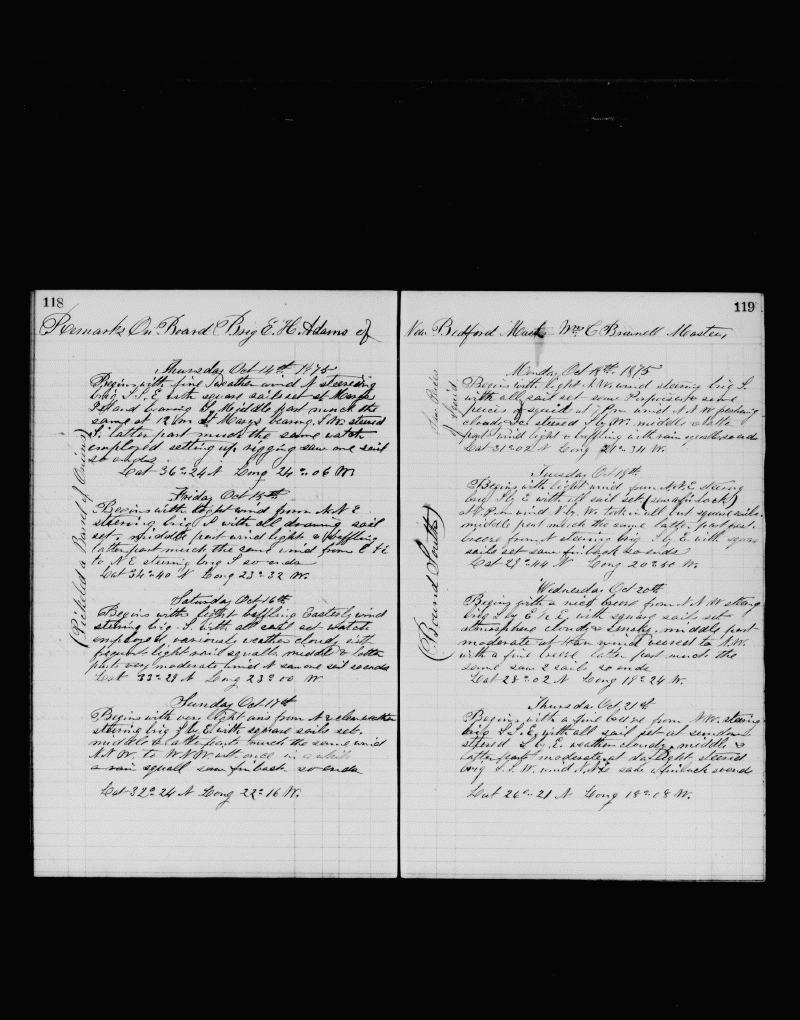 118
Remarks On Board Brig E. H. Adams of
Thursday Oct 14th 1875
Begins with fine weather wind N steering
brig S.S.E. with square sails set St Marys
Island bearing Middle part much the
same at 12 m St Marys bearing S.W. steered
S. latter part much the same watch
employed setting up rigging saw one sail
so ends
Lat 36=24 N Long 24=06 W.
Friday Oct 15th
Begins with light wind from N.N.E.
steering brig S with all drawing sail
set. middle part wind light & baffling
latter part much the same wind from E
to N.E. steering brig S so ends
Lat 34=40 N Long 23=32 W.
Saturday Oct 16th
Begins with light baffling Easterly wind
steering brig S. with all sail set watch
employed variously weather cloudy with
frequent light rain squalls middle & latter
parts very moderate wind N saw one sail so ends
Lat 33=28 N Long 23=00 W
Sunday Oct 17th
Begins with very light airs from N & clear weather
steering brig S by E with square sails set.
middle & latter parts much the same wind
N.N.W. to W.N.W. with once in a while
a rain squall saw finback so ends
Lat 32=24 N Long 22=16 W.
119
New Bedford Mast Wm C Brownell Master,
Monday Oct 18th 1875
Begins with light N.W. wind steering brig S
with all sail set saw Porpoises & some
pieces of squid at PM wind N.N.W.
cloudy steered S by W. middle & latter
part wind light & baffling with rain squalls so ends
Lat 31=02 N Long 21=34 W.
Tuesday Oct 19th
Begins with light wind from N.N.E. steering
brig S by E with all sail set (saw a finback)
at PM wind N. by W. took in all but square sails.
middle part much the same latter part
breeze from N steering brig S by E. with square
sails set saw finback so ends
Lat 29=44 N Long 20=50 W.
Wednesday Oct 20th
Begins with a nice breeze from N.N.W steering
brig S by E ½ E, with square sails set
atmosphere cloudy & smoky. middle part
moderate at 4 am wind veered to N.W.
with a fine breeze latter part much the
same saw 2 sails so ends
Lat 28=02 N Long 19=24 W.
Thursday Oct 21st
Begins with a fine breeze from N.W. steering
brig S.S.E. with all sail set at sundown
steered S. by E. weather cloudy, middle &
latter part moderate, at daylight steered
brig S.S.W. wind N.N.E saw a finback so ends
Lat 26=21 N Long 18=08 W.
(Bound South)